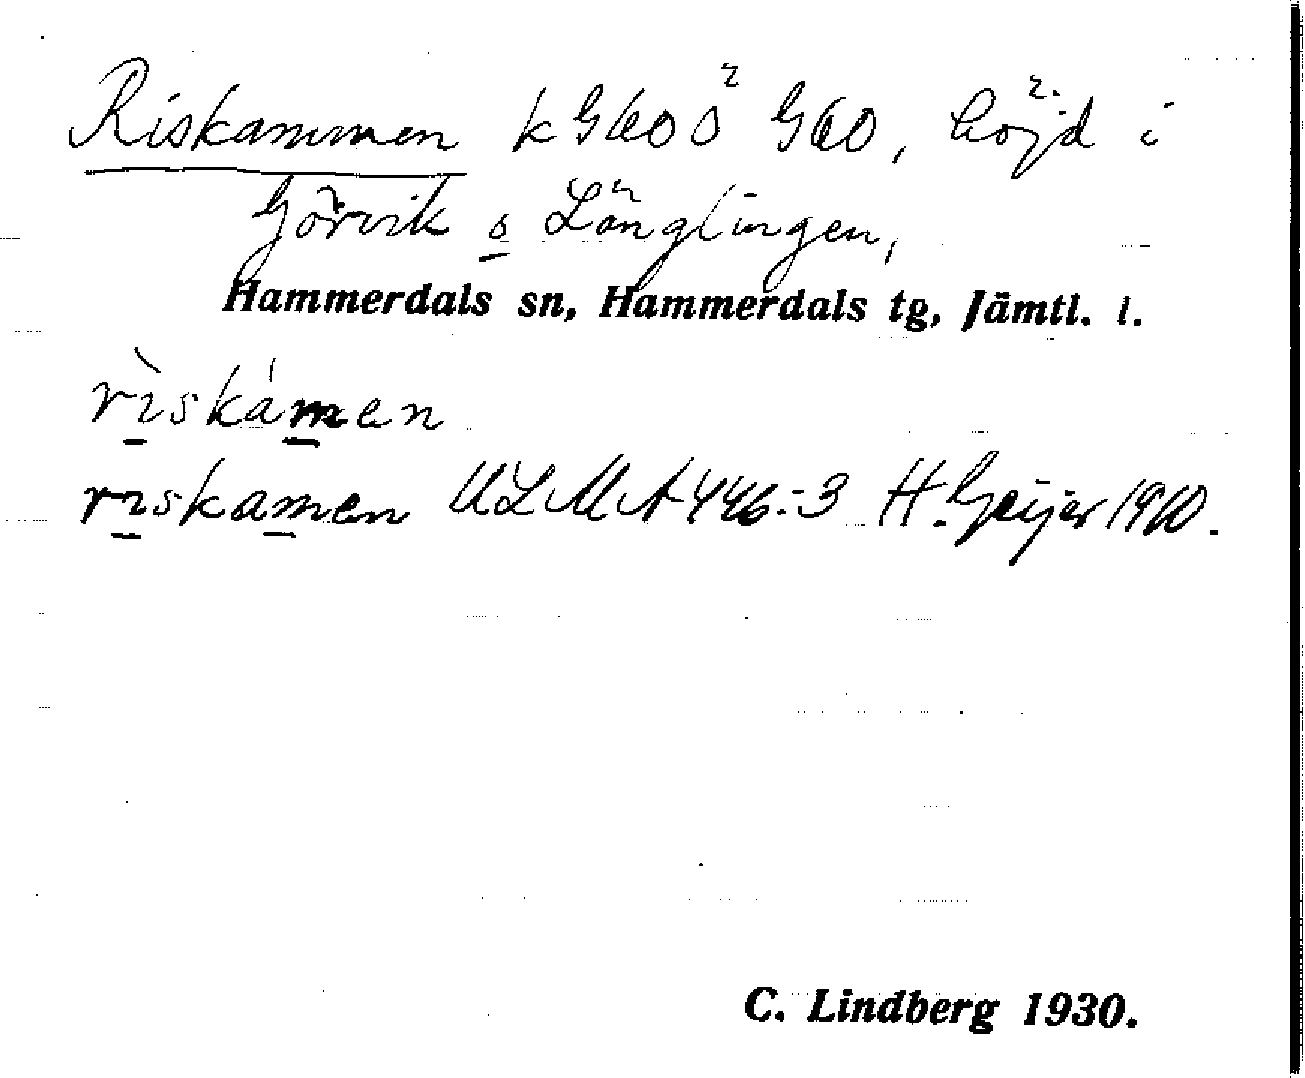 Riskammen k G60 ö G60, höjd i
Görvik s Länglingen,
Hammerdals sn, Hammerdals tg, Jämtl. l.
rìskámen
riskamen ULMA 446:3 H. Geijer 1910.
C. Lindberg 1930.